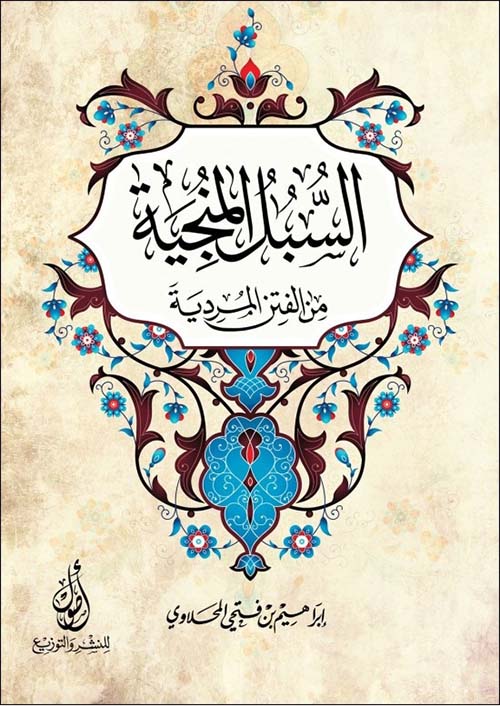 السُّبُلُ المُنْجِيَة
مِنَ الفِتَنِ المُرْدِيَةَ
إبراهيم بن فتحي المحلاوي
أصول
للنشر والتوزيع